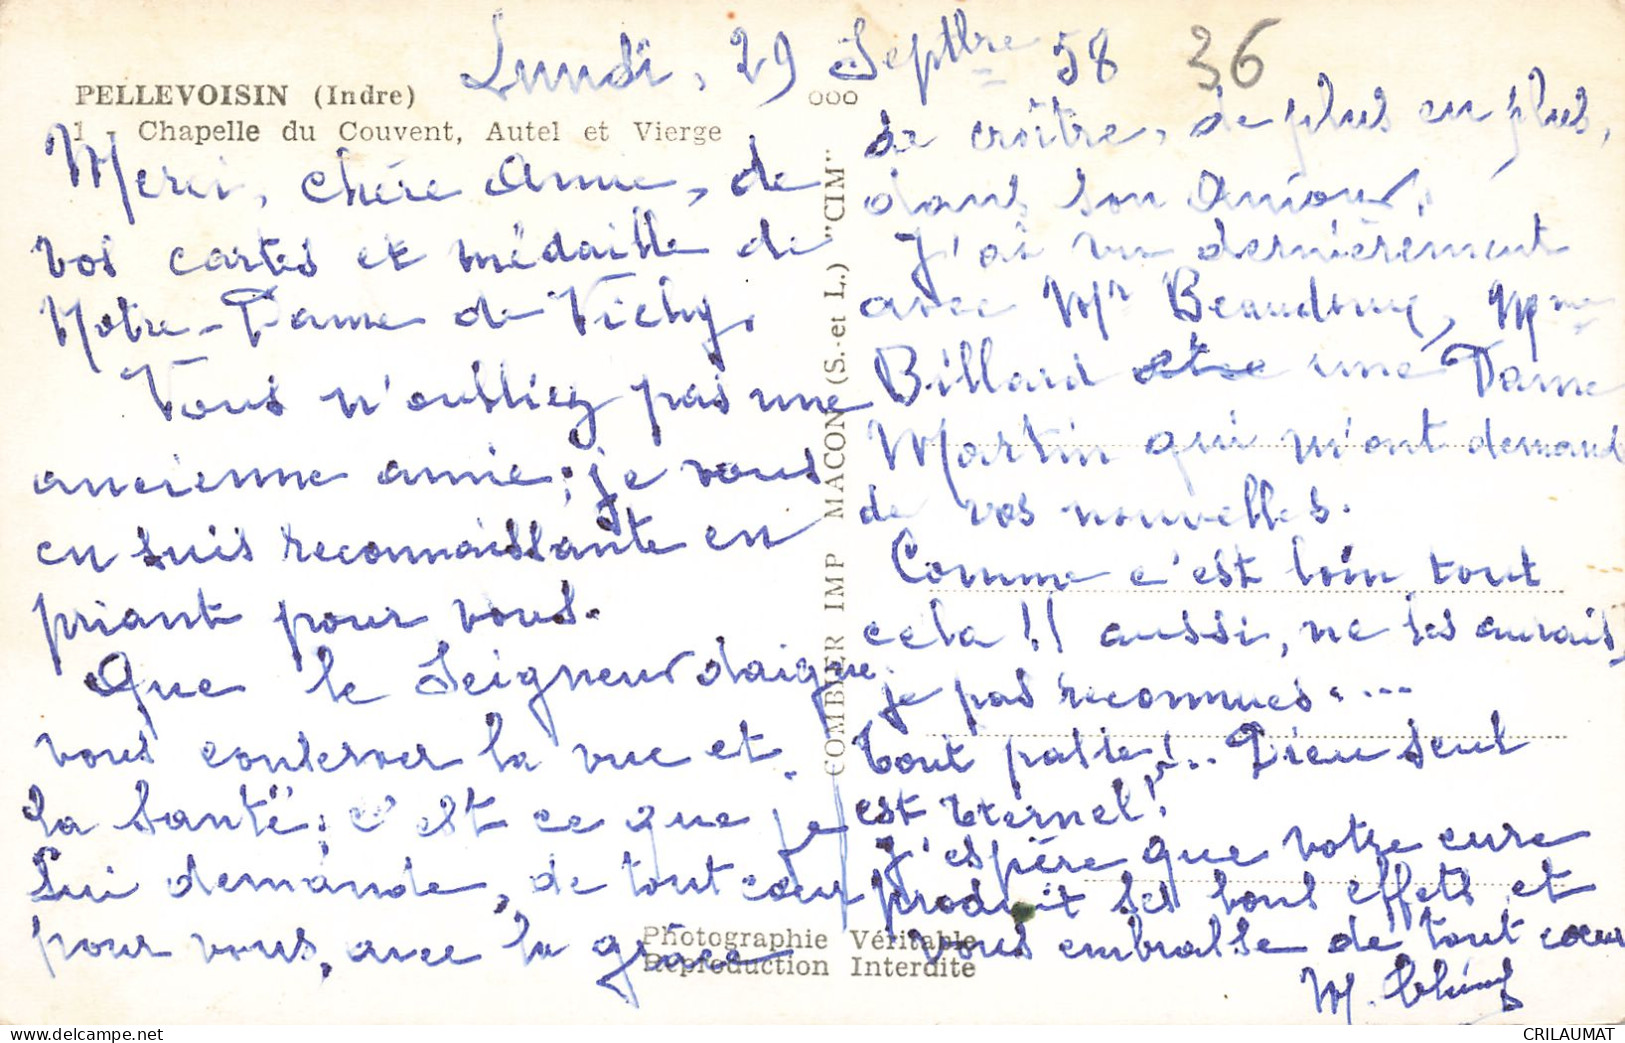 Lundi, 29 Septbre 58
36
PELLEVOISIN (Indre)
1 - Chapelle du Couvent, Autel et Vierge
Merci, chère Anne, de
vos cartes et médaille de
Notre-Dame de Vichy.
Vous n'oubliez pas une
ancienne amie; je vous
en suis reconnaissante en
priant pour vous.
Que le Seigneur daigne
vous conserver la vue et
la santé; c'est ce que je
Lui demande, de tout cœur
pour vous, avec la grâce
000
COMBIER IMP MACON (S.-et L.) "CIM"
de croître, de plus en plus,
dans son Amour.
J'ai vu dernièrement
avec Mr Mme
Billard une Dame
Martin qui m'ont demandé
de vos nouvelles.
Comme c'est loin tout
cela !! aussi, ne les aurais,
je pas reconnues....
Tout passe!... Dieu seul
est Eternel!
J'espère que votre cure
produit ses bons effets et
vous embrasse de tout cœur
M.
Photographie Véritable
Reproduction Interdite
CRILAUMAT